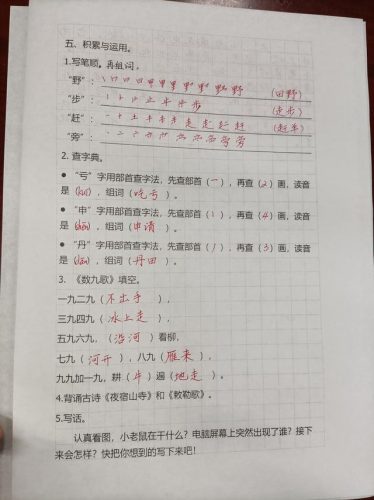 五、积累与运用。
1.写笔顺。再组词。
“野”： 丨 口 日 日 甲 甲 里 野 野 野 野 （田野）
“步”： 丨 卜 止 止 步 步 步 （走步）
“赶”： 一 十 土 キ 走 走 走 赶 赶 （赶车）
“旁”：
2. 查字典。
● “亏”字用部首查字法，先查部首（一），再查（2）画，读音
是（kuī），组词（吃亏）。
● “申”字用部首查字法，先查部首（丨），再查（4）画，读音
是（shēn），组词（申请）。
● “丹”字用部首查字法，先查部首（丿），再查（3）画，读音
是（dān），组词（丹田）。
3. 《数九歌》填空。
一九二九（不出手），
三九四九（冰上走），
五九六九，（沿河）看柳，
七九（河开），八九（雁来），
九九加一九，耕（牛）遍（地走）。
4.背诵古诗《夜宿山寺》和《敕勒歌》。
5.写话。
认真看图，小老鼠在干什么？电脑屏幕上突然出现了谁？接下
来会怎样？快把你想到的写下来吧！